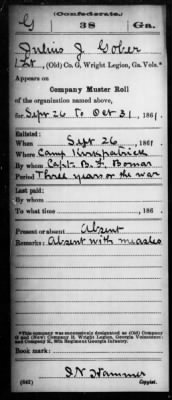 (Confederate.)
G 38 Ga.
Julius J. Gober
Lt, (Old) Co. G, Wright Legion, Ga. Vols.*
Appears on
Company Muster Roll
of the organization named above,
for Sept 26 to Oct 31, 1861.
Enlisted:
When Sept 26, 1861.
Where Camp Kirkpatrick
By whom Capt. B. F. Bomar
Period Three years or the war
Last paid:
By whom
To what time , 186 .
Present or absent Absent
Remarks: Absent with measles
*This company was successively designated as (Old) Company
G and (New) Company H, Wright Legion, Georgia Volunteers;
and Company K, 38th Regiment Georgia Infantry.
Book mark:
(642) Copyist.